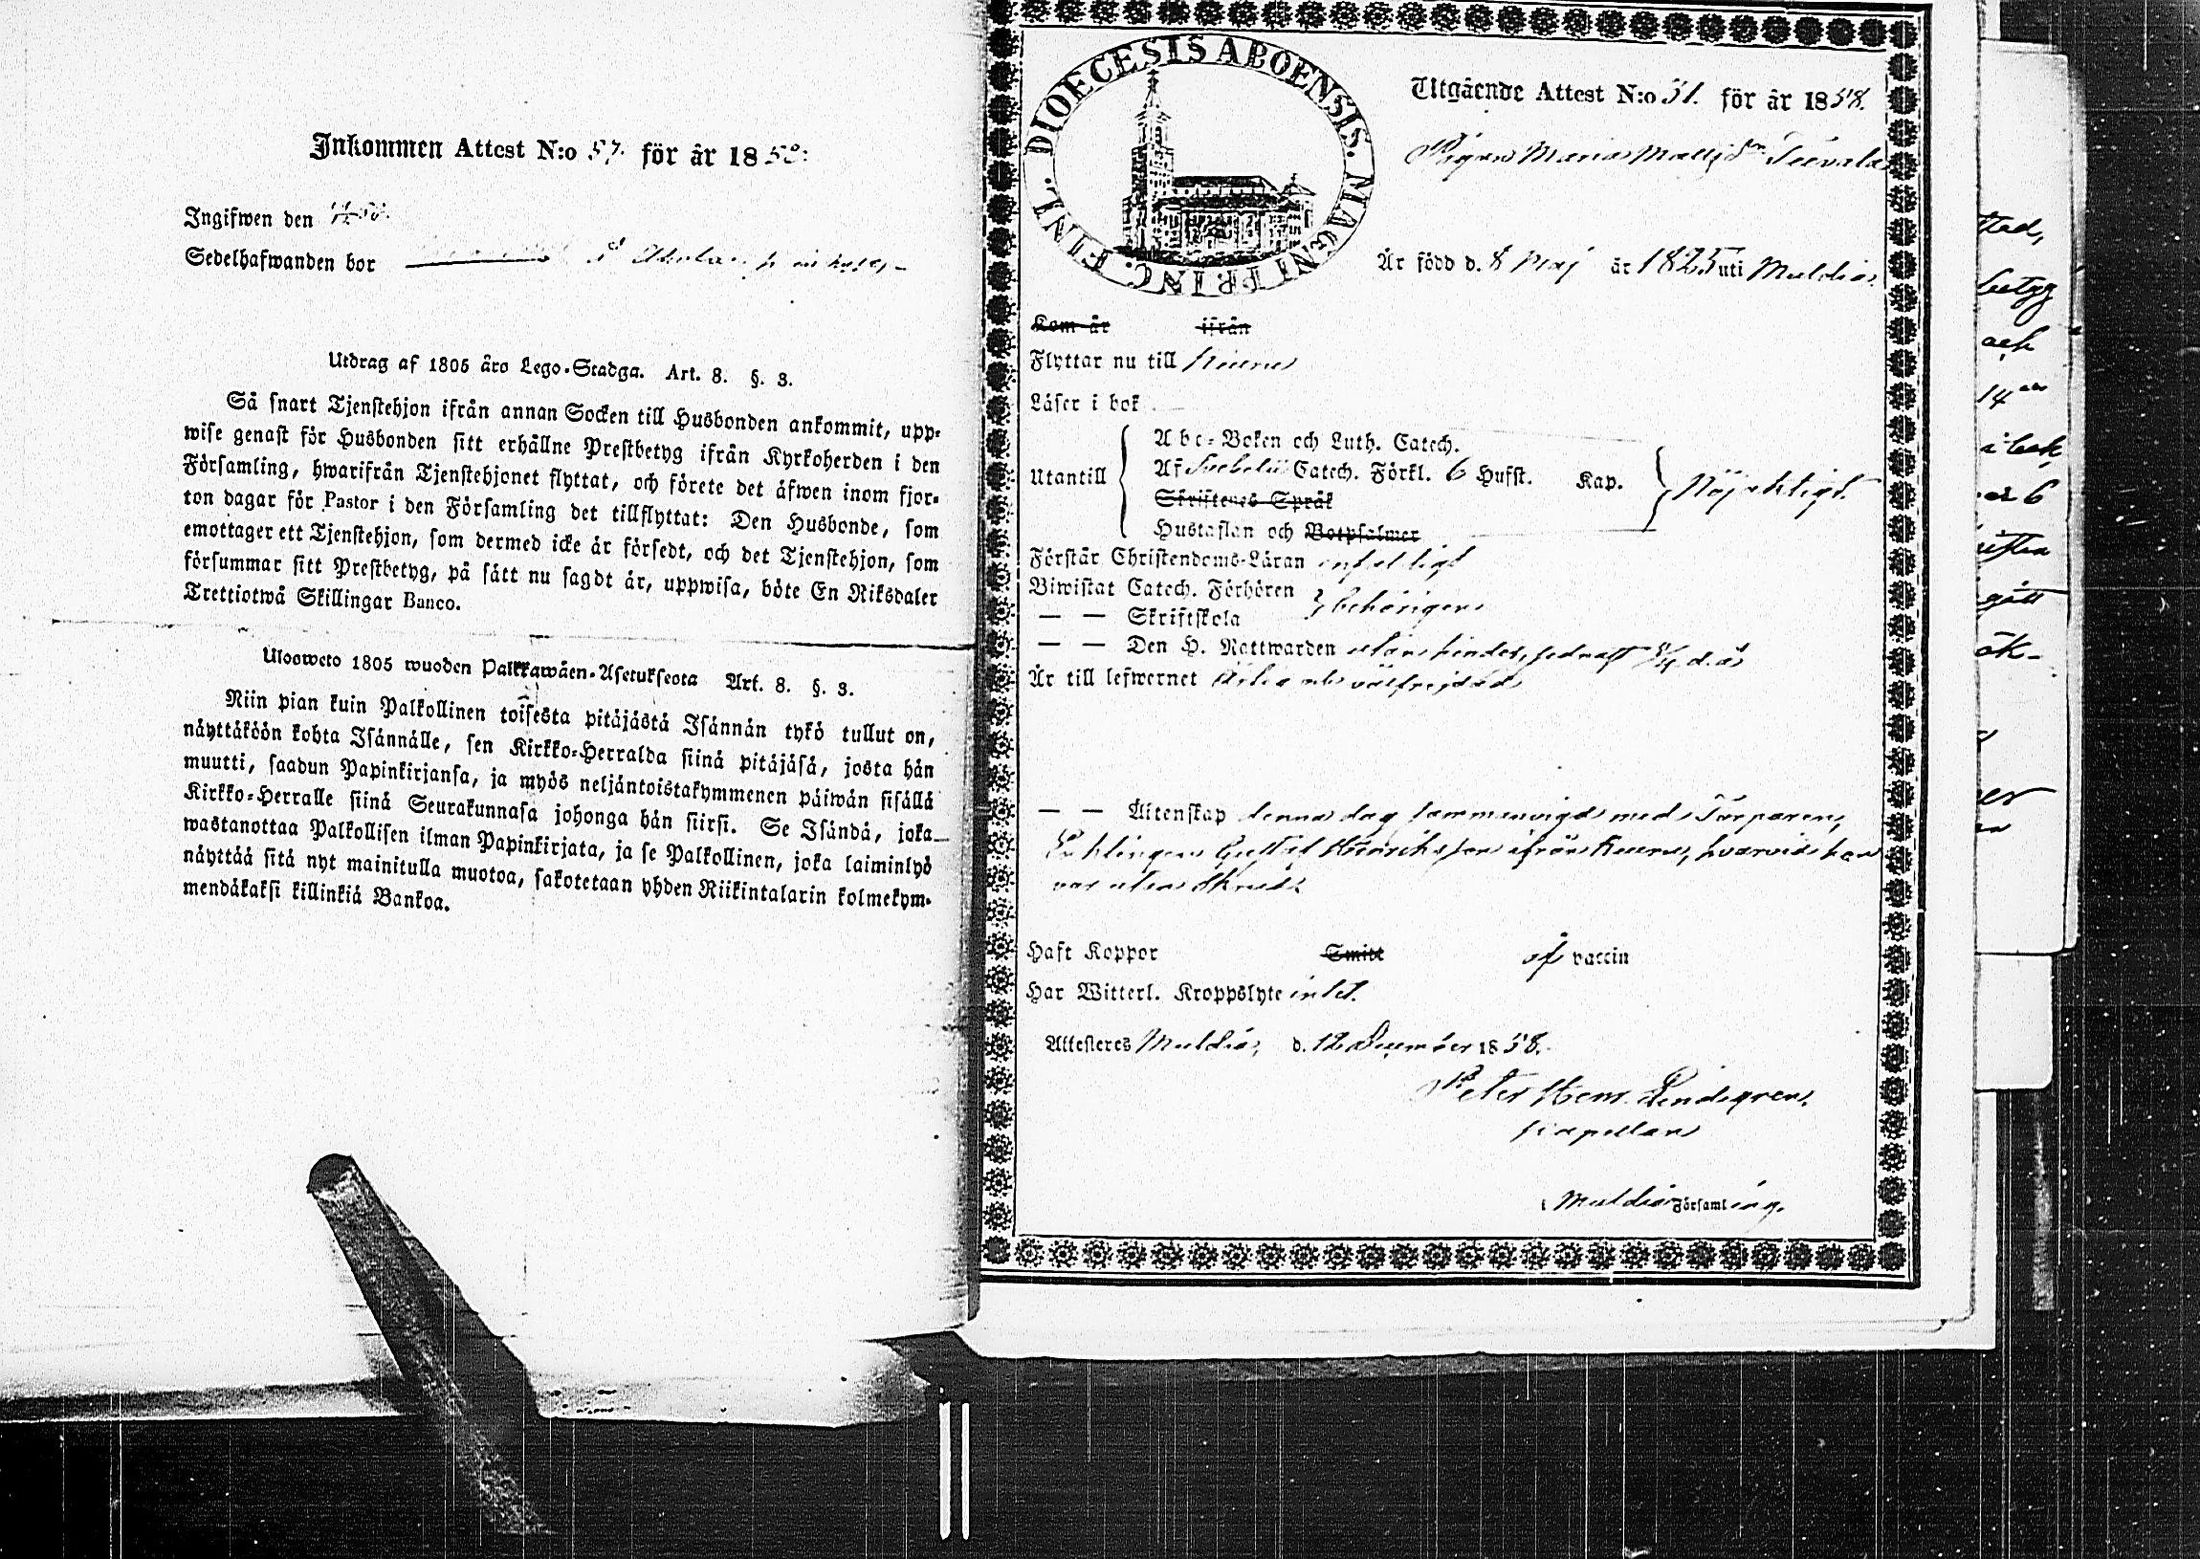 Inkommen Attest N:o 57. för år 1858.
Ingifwen den
Sedelhafwanden bor
Utdrag af 1805 åro Lego-Stadga. Art. 8. §. 3.
Så snart Tjenstehjon ifrån annan Socken till Husbonden ankommit, upp-
wise genast för Husbonden sitt erhållne Prestbetyg ifrån Kyrkoherden i den
Församling, hwarifrån Tjenstehjonet flyttat, och förete det äfwen inom fjor-
ton dagar för Pastor i den Församling det tillflyttat: Den Husbonde, som
emottager ett Tjenstehjon, som dermed icke är försedt, och det Tjenstehjon, som
försummar sitt Prestbetyg, på sätt nu sagdt är, uppwisa, böte En Riksdaler
Trettiotwå Skillingar Banco.
Ulosweto 1805 wuoden Palkkawäen-Asetuksesta Art. 8. §. 3.
Niin pian kuin Palkollinen toisesta pitäjästä Isännän tykö tullut on,
näyttäköön kohta Isännälle, sen Kirkko-Herralda siinä pitäjäsä, josta hän
muutti, saadun Papinkirjansa, ja myös neljäntoistakymmenen päiwän sisällä
Kirkko-Herralle siinä Seurakunnasa johonga hän siirsi. Se Isändä, joka
wastanottaa Palkollisen ilman Papinkirjata, ja se Palkollinen, joka laiminlyö
näyttää sitä nyt mainitulla muotoa, sakotetaan yhden Riikintalarin kolmekym-
mendäkaksi killinkiä Bankoa.
DIOECESIS ABOENSIS. MAGNI PRINC. FINL.
Utgående Attest N:o 51. för år 1858.
Pigan Maria Mattsdr Teevala
Är född d. 8 Maj år 1825 uti Muldia
Kom år ifrån
Flyttar nu till Keuru
Läser i bok
Utantill
Abc-Boken och Luth. Catech.
Af Svebelii Catech. Förkl. 6 Hufst. Kap. Nöjaktigt
Skriftenes Språk
Hustaflan och Botpsalmer
Förstår Christendoms-Läran enfaldigt
Biwistat Catech. Förhören
— — Skriftskola behörigen
— — Den H. Nattwarden utan hinder, sednast d. å
Är till lefwernet ärlig och välfrejdad
— — Äktenskap denna dag sammanvigd med Torparen,
Enklingen Gustaf Henriksson ifrån Keuru, hvarvid hon
var utan skrud.
Haft Koppor Smitt af vaccin
Har Witterl. Kroppslyte intet.
Attesteres Muldia, d. 12 December 1858.
Peter Hem. Lindegren.
kapellan
i Muldia Församling.
betyg
och
14
i bok
6
gått